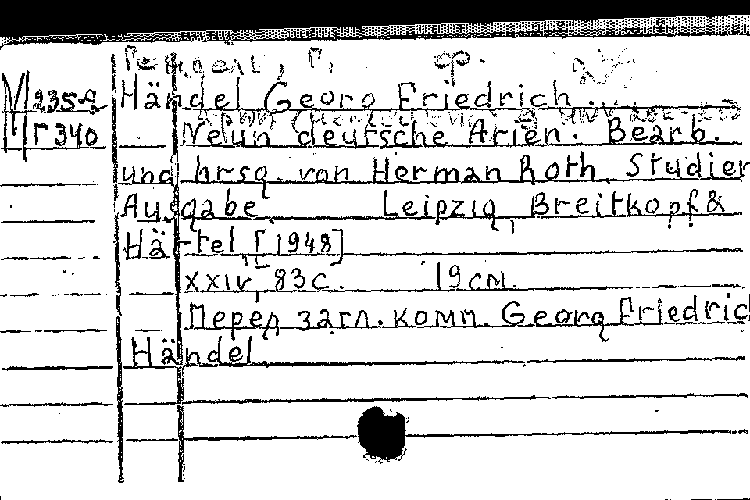 M 235-2 Händel Georg Friedrich.
M г 340 Neun deutsche Arien. Bearb.
und hrsg. von Herman Roth. Studien
Ausgabe. Leipzig, Breitkopf &
Härtel, [1948]
XXIV, 83 с. 19 см.
Перед загл. комп. Georg Friedric
Händel